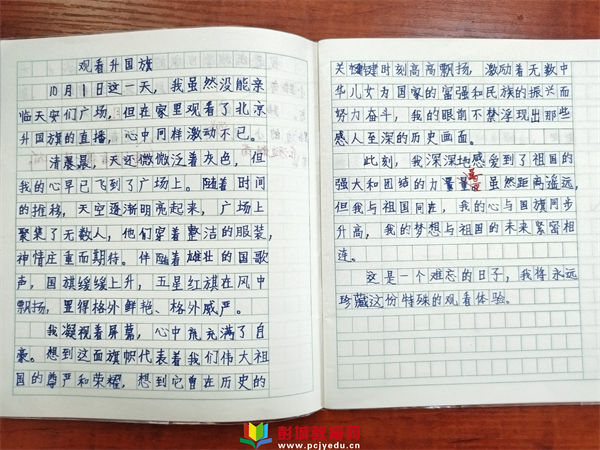 观看升国旗
10月1日这一天，我虽然没能亲
临天安们广场，但在家里观看了北京
升国旗的直播，心中同样激动不已。
清晨，天还微微泛着灰色，但
我的心早已飞到了广场上。随着时间
的推移，天空逐渐明亮起来，广场上
聚集了无数人，他们穿着整洁的服装，
神情庄重而期待。伴随着雄壮的国歌
声，国旗缓缓上升，五星红旗在风中
飘扬，显得格外鲜艳、格外威严。
我凝视着屏幕，心中充满了自
豪。想到这面旗帜代表着我们伟大祖
国的尊严和荣耀，想到它曾在历史的
关键时刻高高飘扬，激励着无数中
华儿女为国家的富强和民族的振兴而
努力奋斗，我的眼前不禁浮现出那些
感人至深的历史画面。
此刻，我深深地感受到了祖国的
强大和团结的力量。虽然距离遥远，
但我与祖国同在，我的心与国旗同步
升高，我的梦想与祖国的未来紧密相
连。
这是一个难忘的日子，我将永远
珍藏这份特殊的观看体验。
彭城教育网
www.pcjyedu.cn